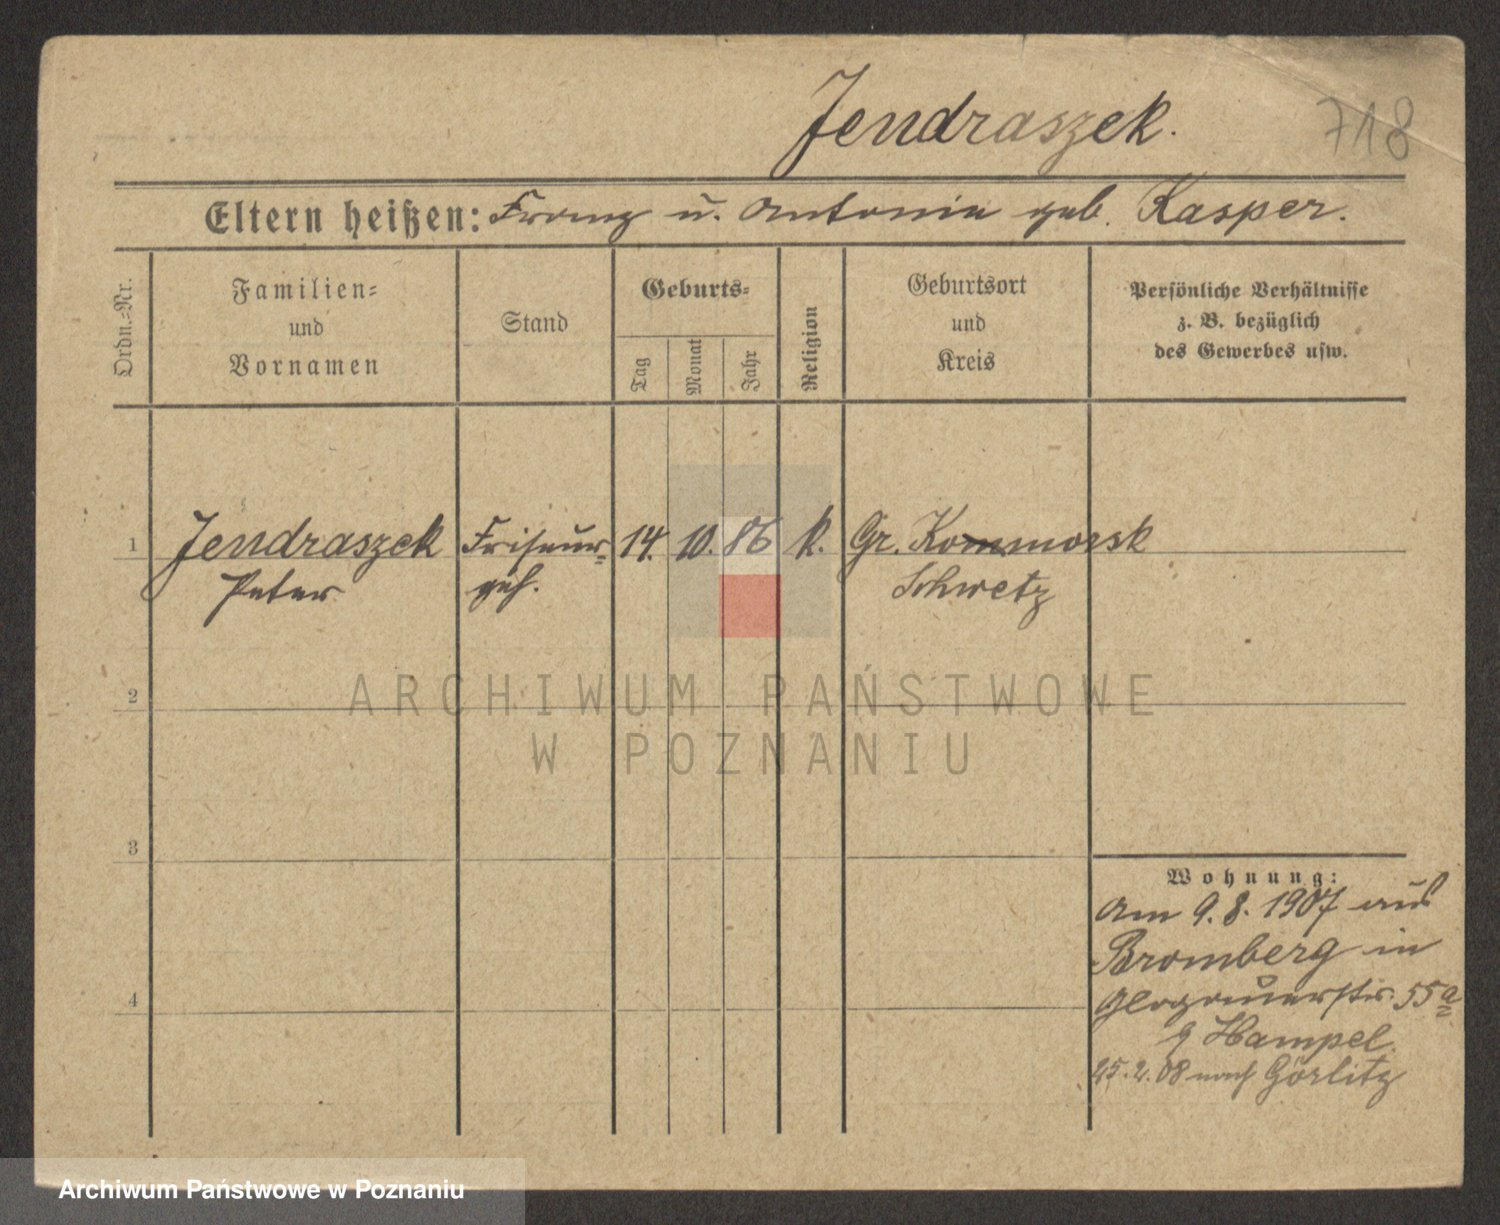 Jendraszek.
718
Eltern heißen: Franz u. Antonia geb. Kasper.
Ordn.-Nr.
Familien-
und
Vornamen
Stand
Geburts-
Tag
Monat
Jahr
Religion
Geburtsort
und
Kreis
Persönliche Verhältnisse
z. B. bezüglich
des Gewerbes usw.
1
Jendraszek Friseur- 14. 10. 86 k. Gr. Kommorsk
Peter geh. Schwetz
2
ARCHIWUM PAŃSTWOWE
W POZNANIU
3
Wohnung:
Am 9. 8. 1907 aus
Bromberg in
4
Glogauerstr. 55a
Hampel.
25. 2. 08 nach Görlitz
Archiwum Państwowe w Poznaniu